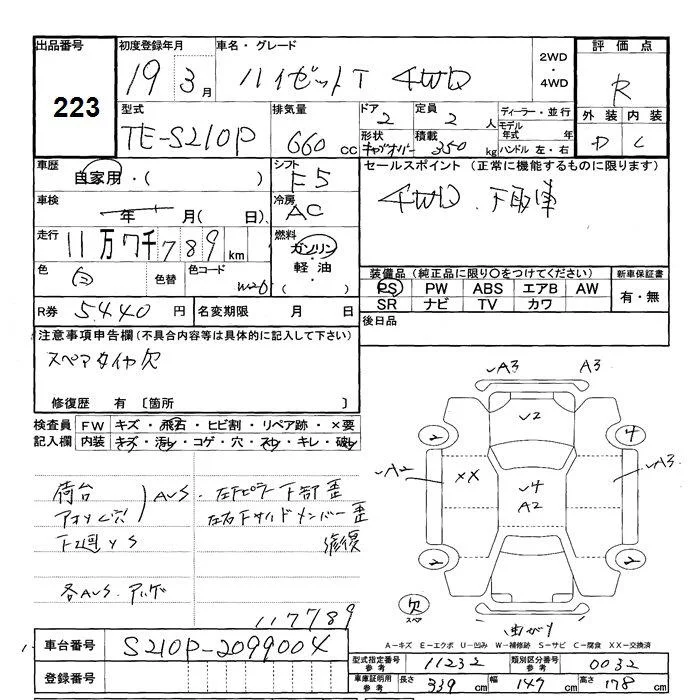 出品番号
223
初度登録年月
19 3月
車名・グレード
ハイゼットT 4WD
2WD
・
4WD
評価点
R
外装 内装
D C
型式
TE-S210P
排気量
660 cc
ドア
2
定員
2 人
形状
キャブオーバー
積載
350 kg
ディーラー・並行
モデル
年式 年
ハンドル 左・右
車歴
自家用・( )
シフト
F5
車検
年 月(日)
冷房
AC
走行
11万7千789 km
燃料
ガソリン
・
軽油
・
色
白
色替
色コード
W26
R券 5,440 円
名変期限 月 日
セールスポイント (正常に機能するものに限ります)
4WD. 下取車
装備品(純正品に限り○をつけてください)
PS PW ABS エアB AW
SR ナビ TV カワ
新車保証書
有・無
後日品
注意事項申告欄(不具合内容等は具体的に記入して下さい)
スペアタイヤ欠
修復歴 有 〔箇所 〕
検査員 FW キズ・飛石・ヒビ割・リペア跡・×要
記入欄 内装 キズ・汚レ・コゲ・穴・スレ・キレ・破レ
荷台
AUS.
下廻りS
各AUS.
左Fピラー下部歪
左右Fサイドメンバー歪
修復
117789
A3 A3
U2
2 4
A2 XX A3
U4
A2
2 2
欠
スペア
曲がり
A-キズ E-エクボ U-凹み W-補修跡 S-サビ C-腐食 XX-交換済
車台番号
S210P-2099004
登録番号
型式指定番号
参考
11232
類別区分番号
参考
0032
車庫証明用
参考
長さ 339 cm 幅 147 cm 高さ 178 cm